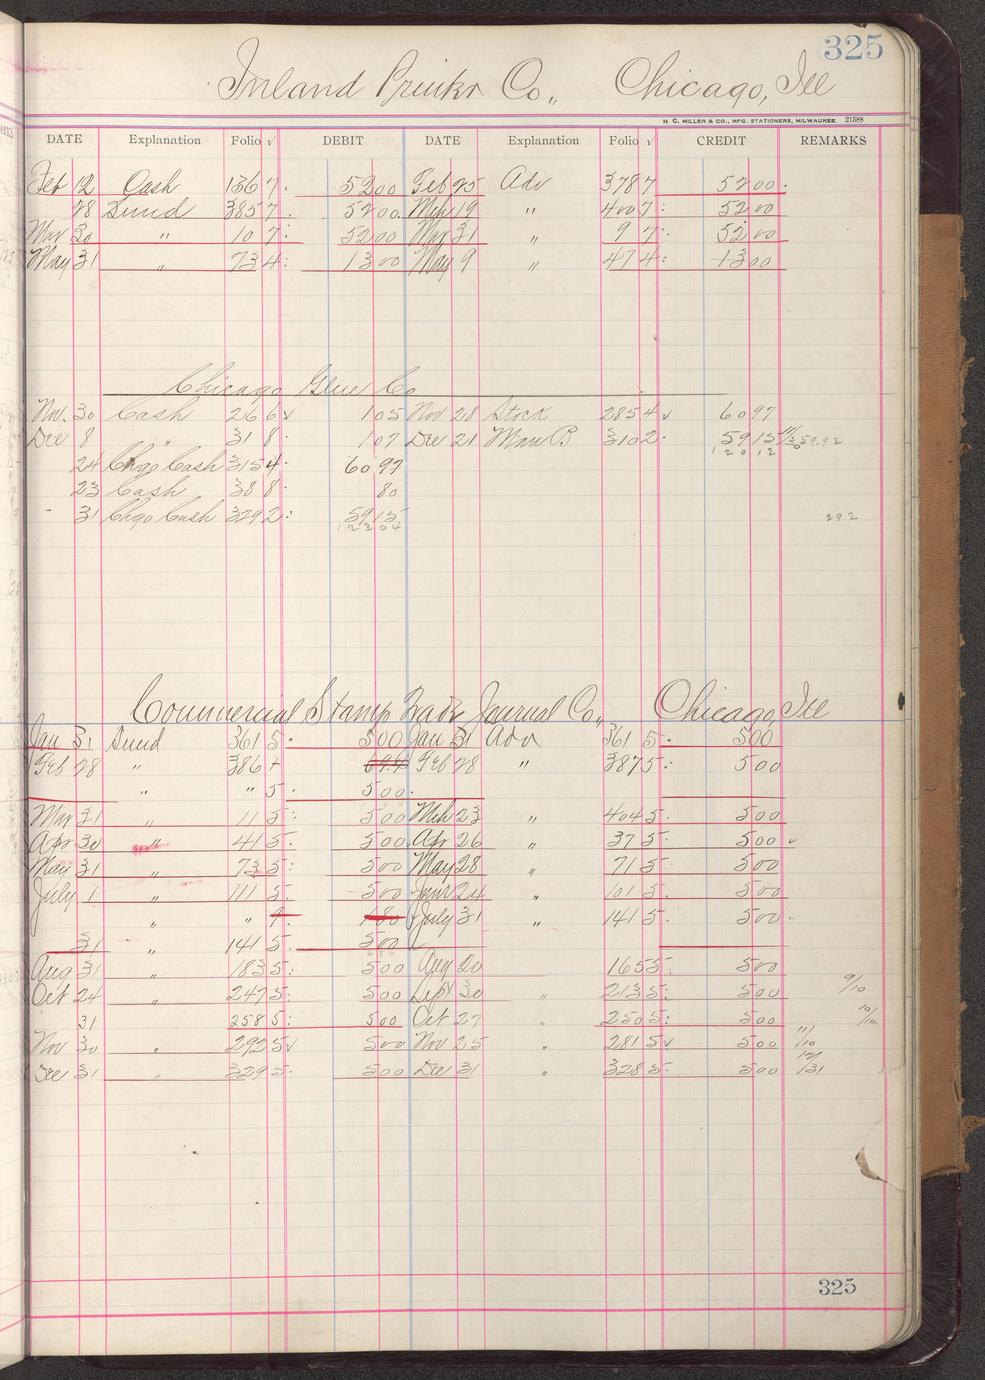 325
Inland Printer Co., Chicago, Ill
H. C. MILLER & CO., MFG. STATIONERS, MILWAUKEE 21588
DATE Explanation Folio √ DEBIT DATE Explanation Folio √ CREDIT REMARKS
Feb 12 Cash 136 7. 52 00 Feb 25 Adv 378 7 52 00.
28 Sund 385 7. 52 00. Mch 19 " 400 7: 52 00
Mar 30 " 10 7: 52 00 Mar 31 " 9 7. 52 00
May 31 " 73 4: 13 00 May 9 " 47 4: 13 00
Chicago Glue Co
Nov. 30 Cash 266 √ 1 05 Nov 28 Stock 285 4 √ 60 97
Dec 8 " 31 8. 1 07 Dec 21 Man B 310 2. 59 15 11/30 59.92
120 12
24 Chgo Cash 315 4. 60 97
23 Cash 38 8. 80
31 Chgo Cash 329 2: 59 15 292
123 04
Commercial Stamp Trade Journal Co., Chicago, Ill
Jan 31 Sund 361 5. 5 00 Jan 31 Adv 361 5. 5 00
Feb 28 " 386 + 69.4 Feb 28 " 387 5: 5 00
" " 5. 5 00.
Mar 31 " 11 5: 5 00 Mch 23 " 404 5. 5 00
Apr 30 " 41 5. 5 00 Apr 26 " 37 5. 5 00 √
May 31 " 73 5: 5 00 May 28 " 71 5: 5 00
July 1 " 111 5. 5 00 June 24 " 101 5. 5 00
" " 9. 1 80 July 31 " 141 5. 5 00
31 " 141 5. 5 00
Aug 31 " 183 5: 5 00 Aug 20 165 5. 5 00
Oct 24 " 247 5: 5 00 Sept 30 " 213 5: 5 00 9/10
31 258 5: 5 00 Oct 27 " 250 5: 5 00 10/10
Nov 30 " 292 5 √ 5 00 Nov 25 " 281 5 √ 5 00 11/10
Dec 31 " 329 5. 5 00 Dec 31 " 328 5. 5 00 12/31
325